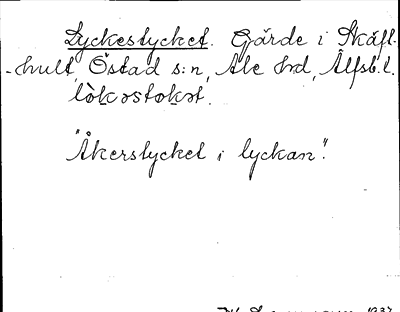 Lyckestycket. Gärde i Skäfl-
-hult, Östad s:n, Ale hrd, Älfsb. l.
lòkostokət.
"Åkerstycket i lyckan".
1937